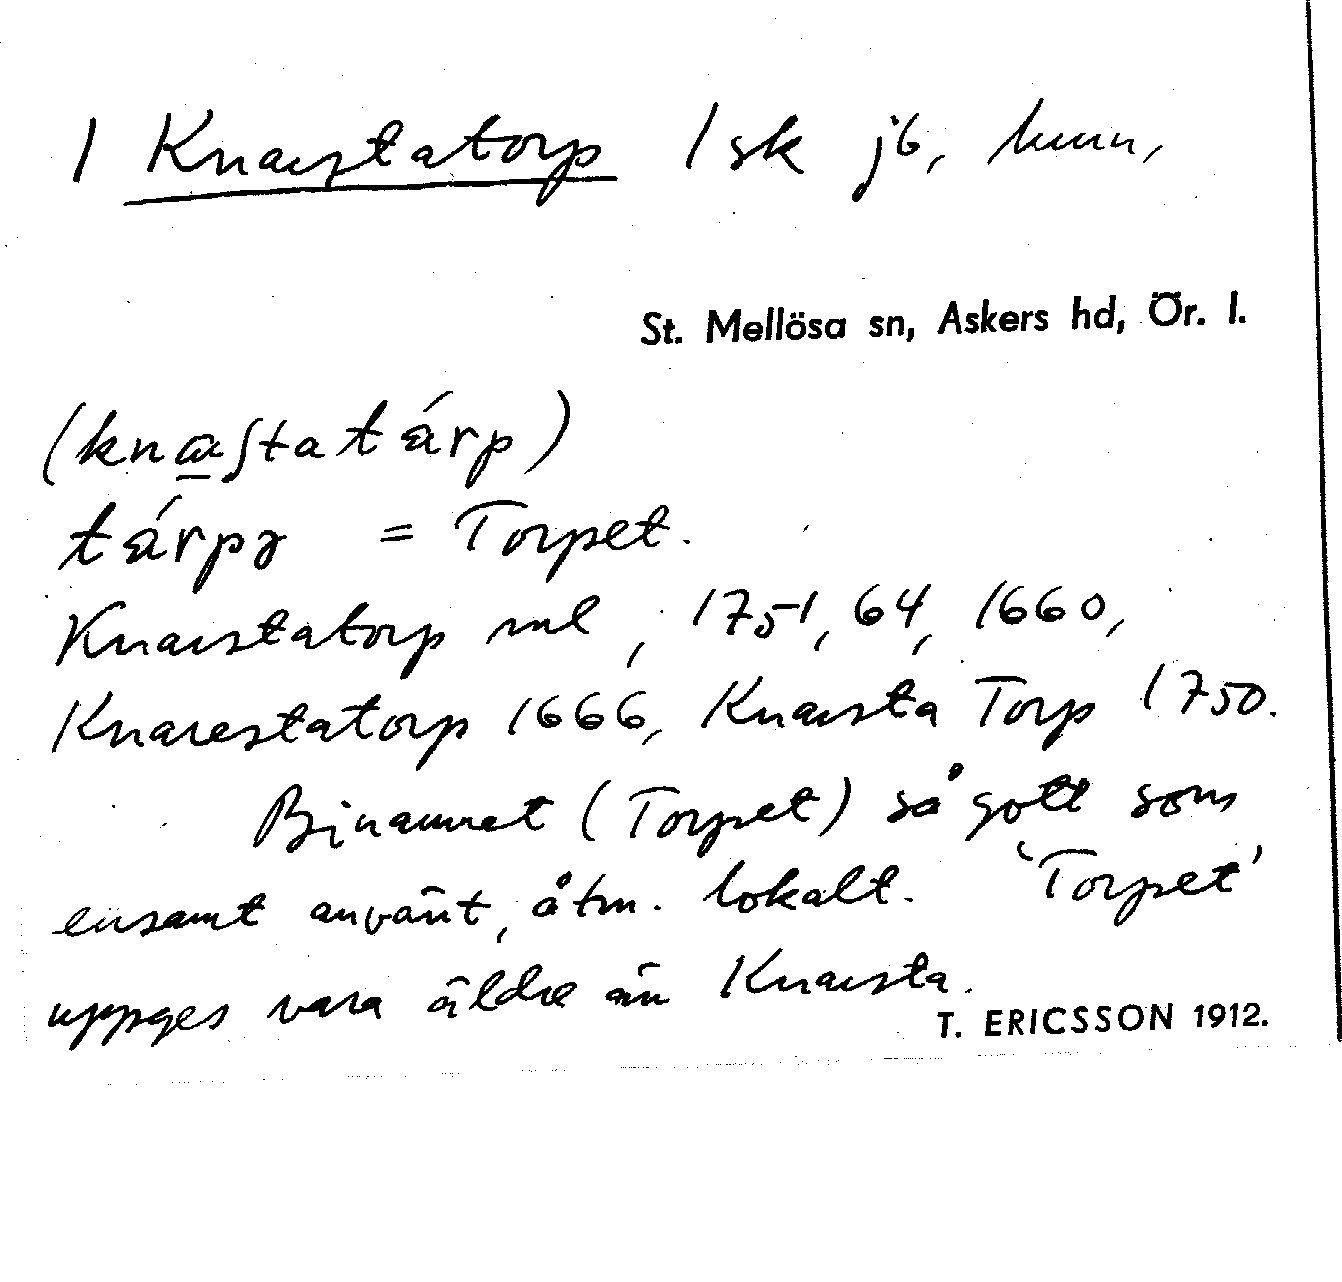 1 Knaustatorp 1 sk jb, hmn,
St. Mellösa sn, Askers hd, Ör. l.
(knaʃtatárp)
tárpə = Torpet.
Knaustatorp ml, 1751, 64, 1660,
Knarestatorp 1666, Knausta Torp 1750.
Binamnet (Torpet) så gott som
ensamt använt, åtm. lokalt. 'Torpet'
uppges vara äldre än Knausta.
T. ERICSSON 1912.